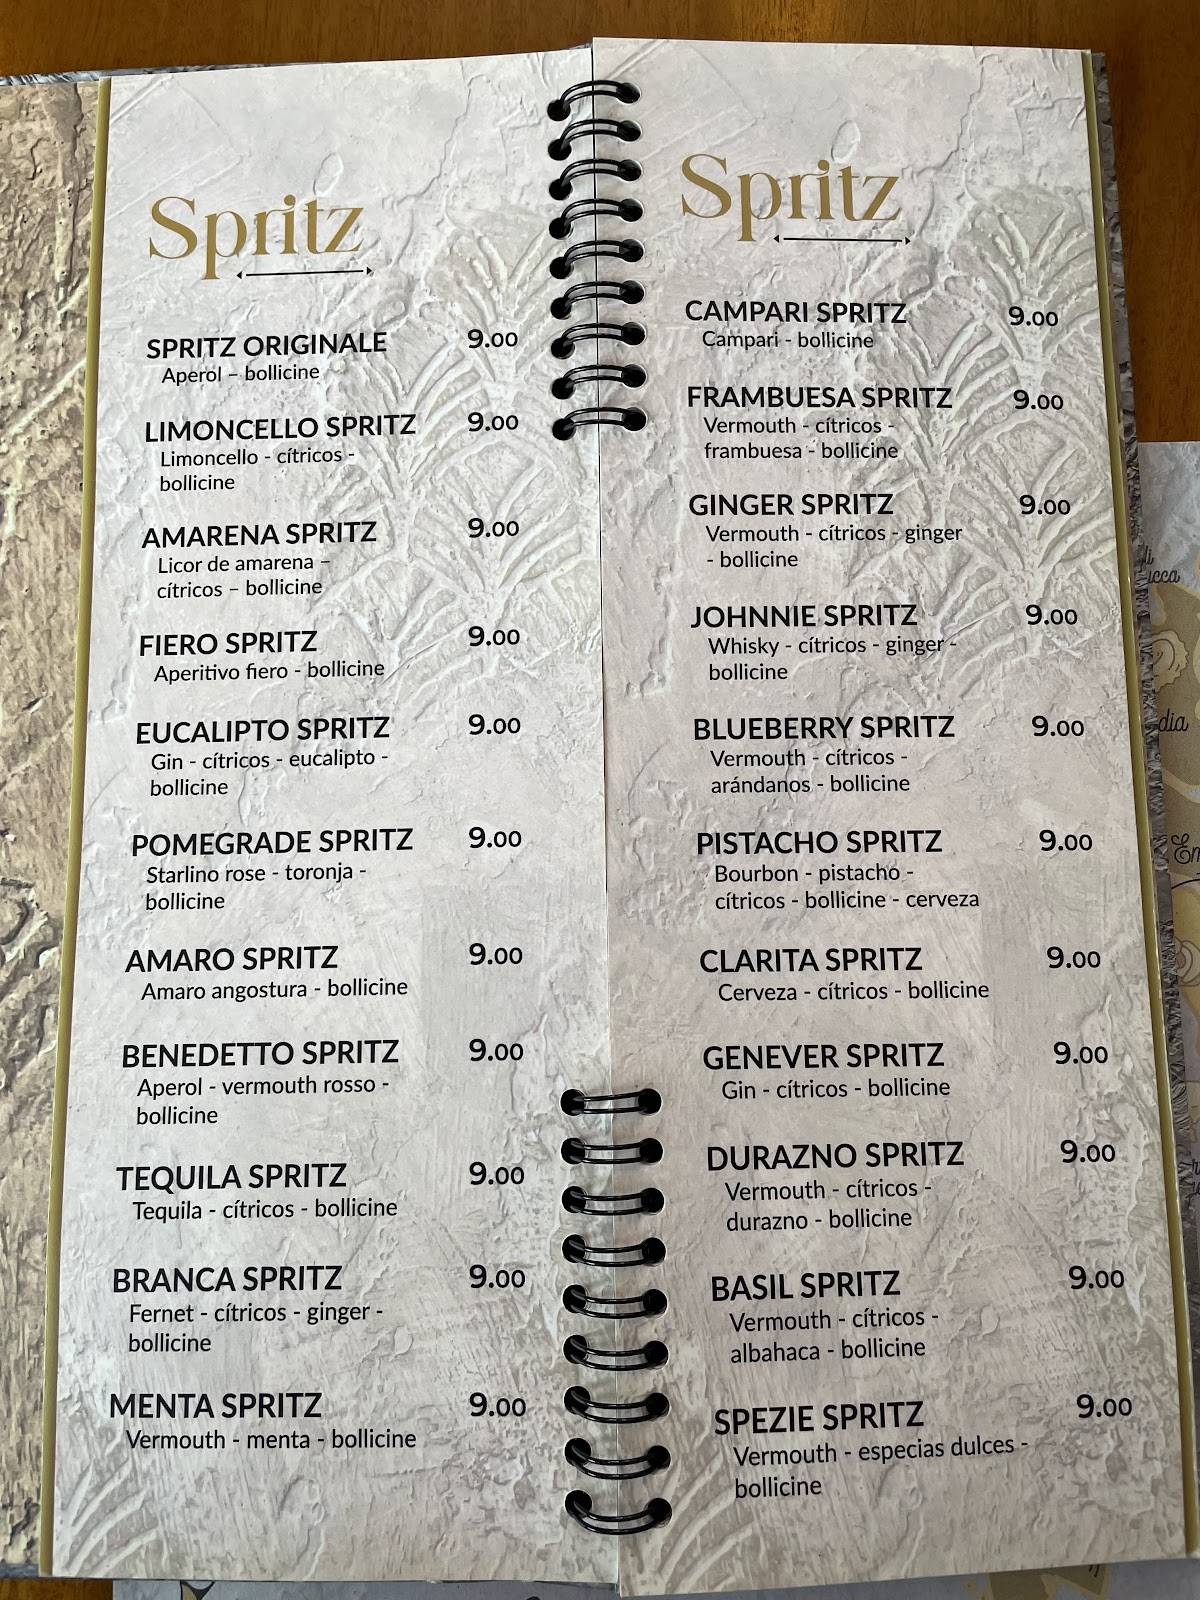 Spritz
SPRITZ ORIGINALE 9.00
Aperol – bollicine
LIMONCELLO SPRITZ 9.00
Limoncello - cítricos -
bollicine
AMARENA SPRITZ 9.00
Licor de amarena –
cítricos – bollicine
FIERO SPRITZ 9.00
Aperitivo fiero - bollicine
EUCALIPTO SPRITZ 9.00
Gin - cítricos - eucalipto -
bollicine
POMEGRADE SPRITZ 9.00
Starlino rose - toronja -
bollicine
AMARO SPRITZ 9.00
Amaro angostura - bollicine
BENEDETTO SPRITZ 9.00
Aperol - vermouth rosso -
bollicine
TEQUILA SPRITZ 9.00
Tequila - cítricos - bollicine
BRANCA SPRITZ 9.00
Fernet - cítricos - ginger -
bollicine
MENTA SPRITZ 9.00
Vermouth - menta - bollicine
Spritz
CAMPARI SPRITZ 9.00
Campari - bollicine
FRAMBUESA SPRITZ 9.00
Vermouth - cítricos -
frambuesa - bollicine
GINGER SPRITZ 9.00
Vermouth - cítricos - ginger
- bollicine
JOHNNIE SPRITZ 9.00
Whisky - cítricos - ginger -
bollicine
BLUEBERRY SPRITZ 9.00
Vermouth - cítricos -
arándanos - bollicine
PISTACHO SPRITZ 9.00
Bourbon - pistacho -
cítricos - bollicine - cerveza
CLARITA SPRITZ 9.00
Cerveza - cítricos - bollicine
GENEVER SPRITZ 9.00
Gin - cítricos - bollicine
DURAZNO SPRITZ 9.00
Vermouth - cítricos -
durazno - bollicine
BASIL SPRITZ 9.00
Vermouth - cítricos -
albahaca - bollicine
SPEZIE SPRITZ 9.00
Vermouth - especias dulces -
bollicine